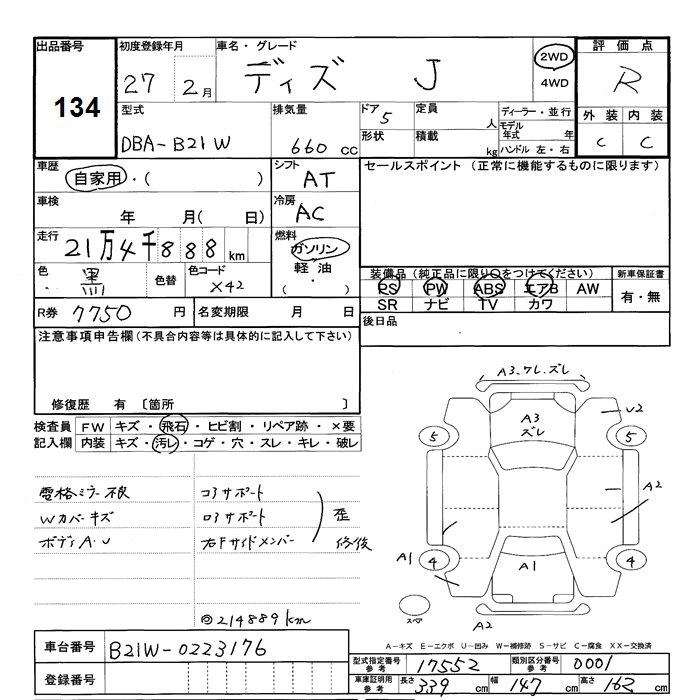 出品番号
134
初度登録年月
27 2月
車名・グレード
デイズ J
2WD
4WD
評価点
R
外装 内装
C C
型式
DBA-B21W
排気量
660 cc
ドア 5
形状
定員 人
積載 kg
ディーラー・並行
モデル年式 年
ハンドル 左・右
車歴
自家用・( )
シフト
AT
セールスポイント (正常に機能するものに限ります)
車検
年 月( 日)
冷房
AC
走行
21万4千888km
燃料
ガソリン
軽油
( ・ )
色
黒
色替
色コード
X42
装備品 (純正品に限り○をつけてください)
PS PW ABS エアB AW
SR ナビ TV カワ
新車保証書
有・無
R券 7750 円
名変期限 月 日
後日品
注意事項申告欄(不具合内容等は具体的に記入して下さい)
修復歴 有 〔箇所 〕
検査員記入欄
FW キズ・飛石・ヒビ割・リペア跡・×要
内装 キズ・汚レ・コゲ・穴・スレ・キレ・破レ
電格ミラー不良
Wカバーキズ
ボディA・U
コアサポート
ロアサポート
右Fサイドメンバー
歪
修復
◎214889km
A3・ワレ・ズレ
A3
ズレ
U2
5
5
A2
A1
4
4
A1
スペア
A2
A-キズ E-エクボ U-凹み W-補修跡 S-サビ C-腐食 XX-交換済
車台番号
B21W-0223176
登録番号
型式指定番号
参考
17552
類別区分番号
参考
0001
車庫証明用
参考
長さ 339 cm
幅 147 cm
高さ 162 cm